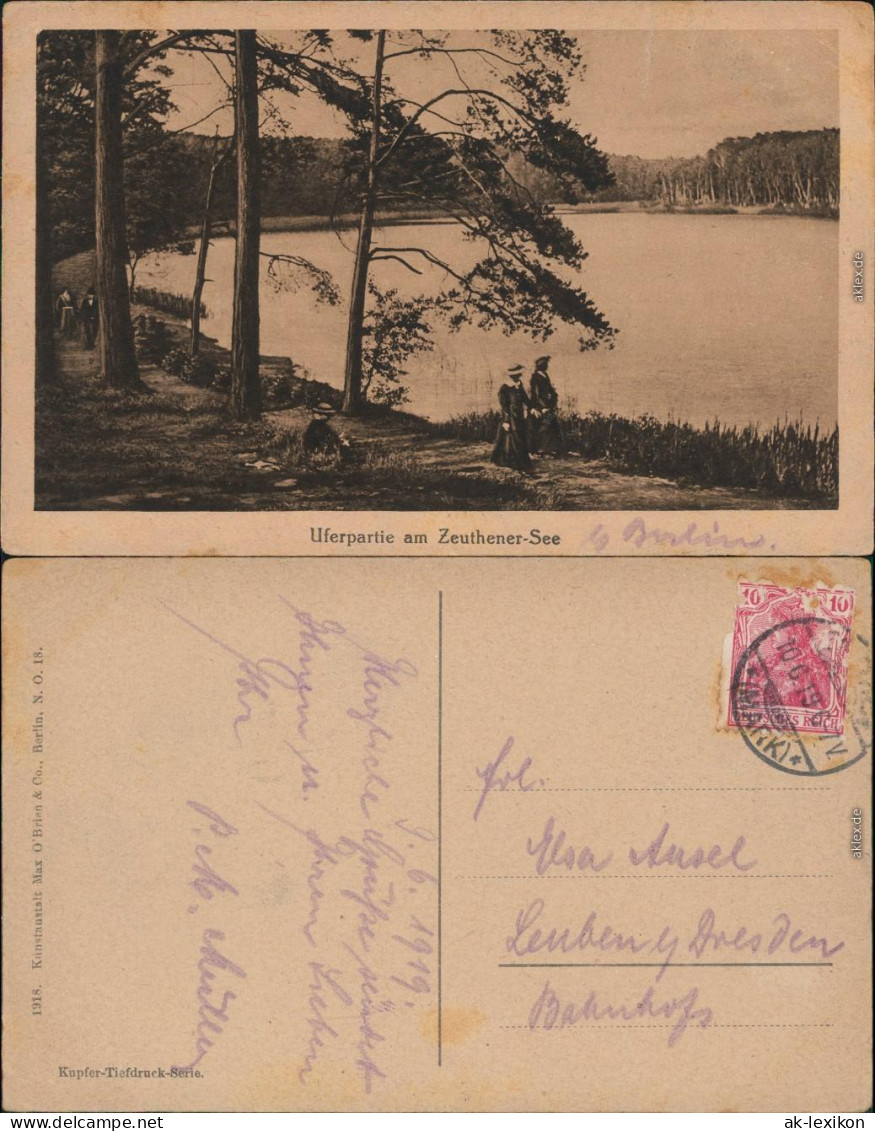 Uferpartie am Zeuthener-See b/ Berlin.
aklex.de
1918. Kunstanstalt Max O'Brien & Co., Berlin, N. O. 18.
Kupfer-Tiefdruck-Serie.
9. 6. 1919.
Herzliche Grüße sendet
Ihnen u. Ihren Lieben
Ihr
P. M. Müller
10 10
DEUTSCHES REICH
10.6.19
(MARK)
Frl.
Elsa Ansel
Leuben b/ Dresden
Bahnhofs
aklex.de
ak-lexikon